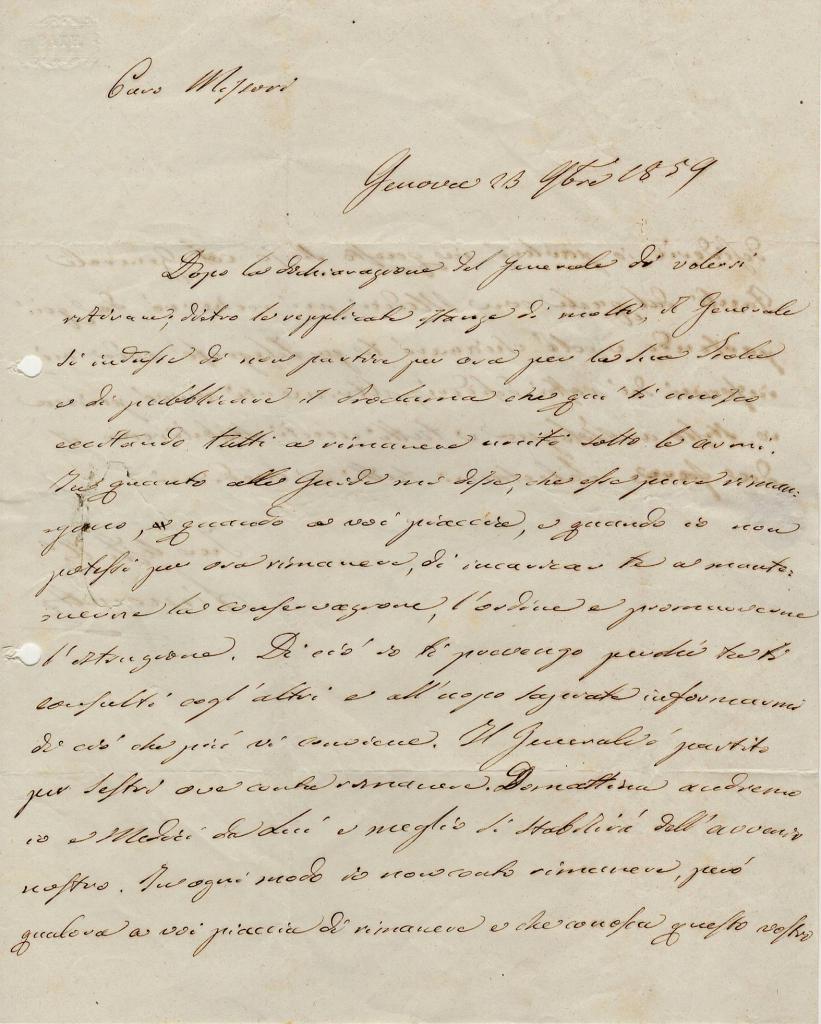 Caro Missori
Genova 23 9bre 1859
Dopo la dichiarazione del Generale di volersi
ritirare, dietro le repplicate istanze di molti, il Generale
si indusse di non partire per ora per la sua Isola
e di pubblicare il Proclama che quì ti unisco
eccitando tutti a rimanere uniti sotto le armi.
In quanto alle Guide mi disse, che esse pure riman-
gano, e quando a voi piaccia, e quando io non
potessi per ora rimanere, di incaricar te a mante-
nerne la conservazione, l'ordine e promuoverne
l'istruzione. Di ciò io ti prevengo perché tu ti
consulti cogl'altri e all'uopo sappiate informarmi
di ciò che più vi conviene. Il Generale è partito
per Sestri ove conta rimanere. Domattina andremo
io e Medici da Lui e meglio si stabilirà dell'avvenir
nostro. In ogni modo io non conto rimanere, però
qualora a voi piaccia di rimanere e che conosca questo vostro